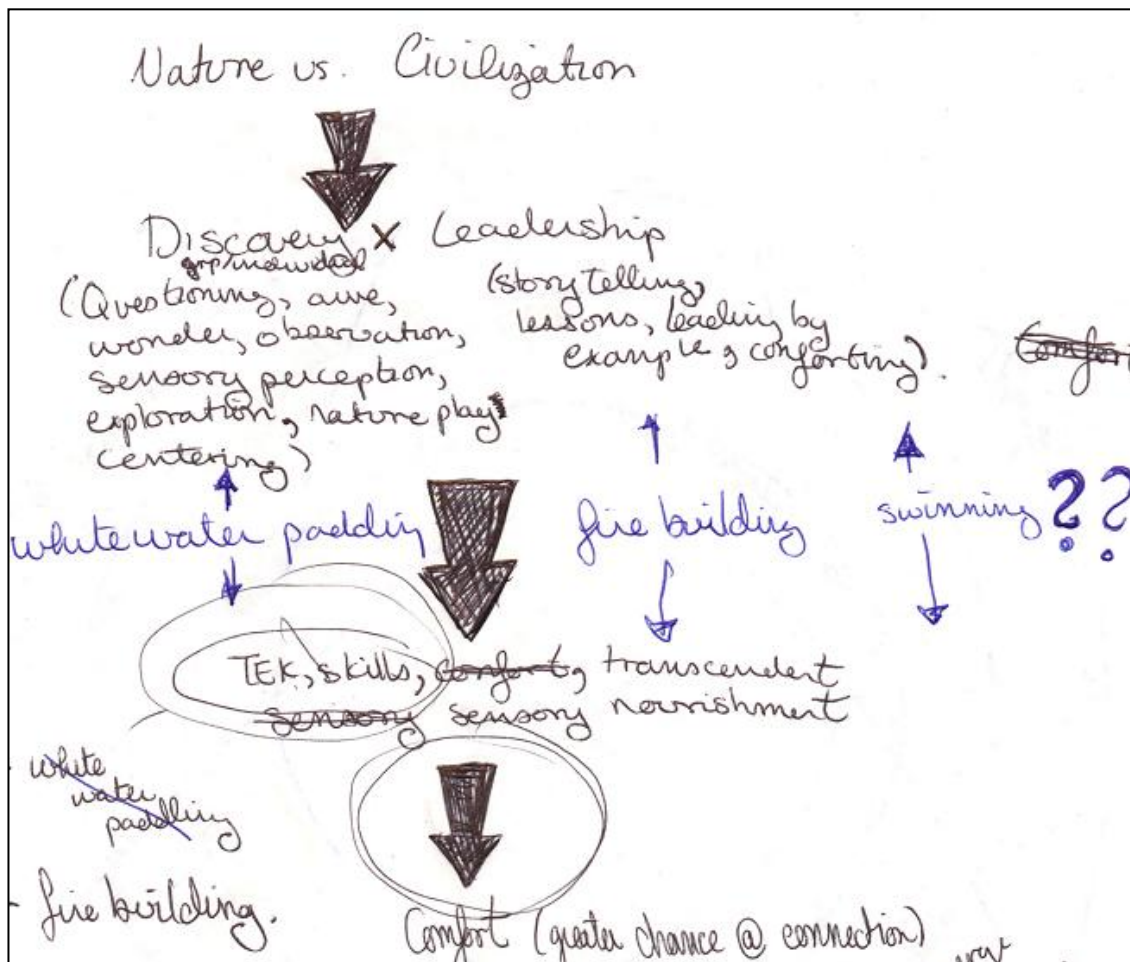 Nature vs. Civilization
Discovery x Leadership
grp/individual
(Questioning, awe,
wonder, observation,
sensory perception,
exploration, nature play
centering)
(story telling,
lessons, leading by
example, comforting).
whitewater paddlin
fire building
swimming ??
TEK, skills, comfort, transcendent
sensory sensory nourishment
- white
water
paddling
- fire building.
Comfort (greater chance @ connection)